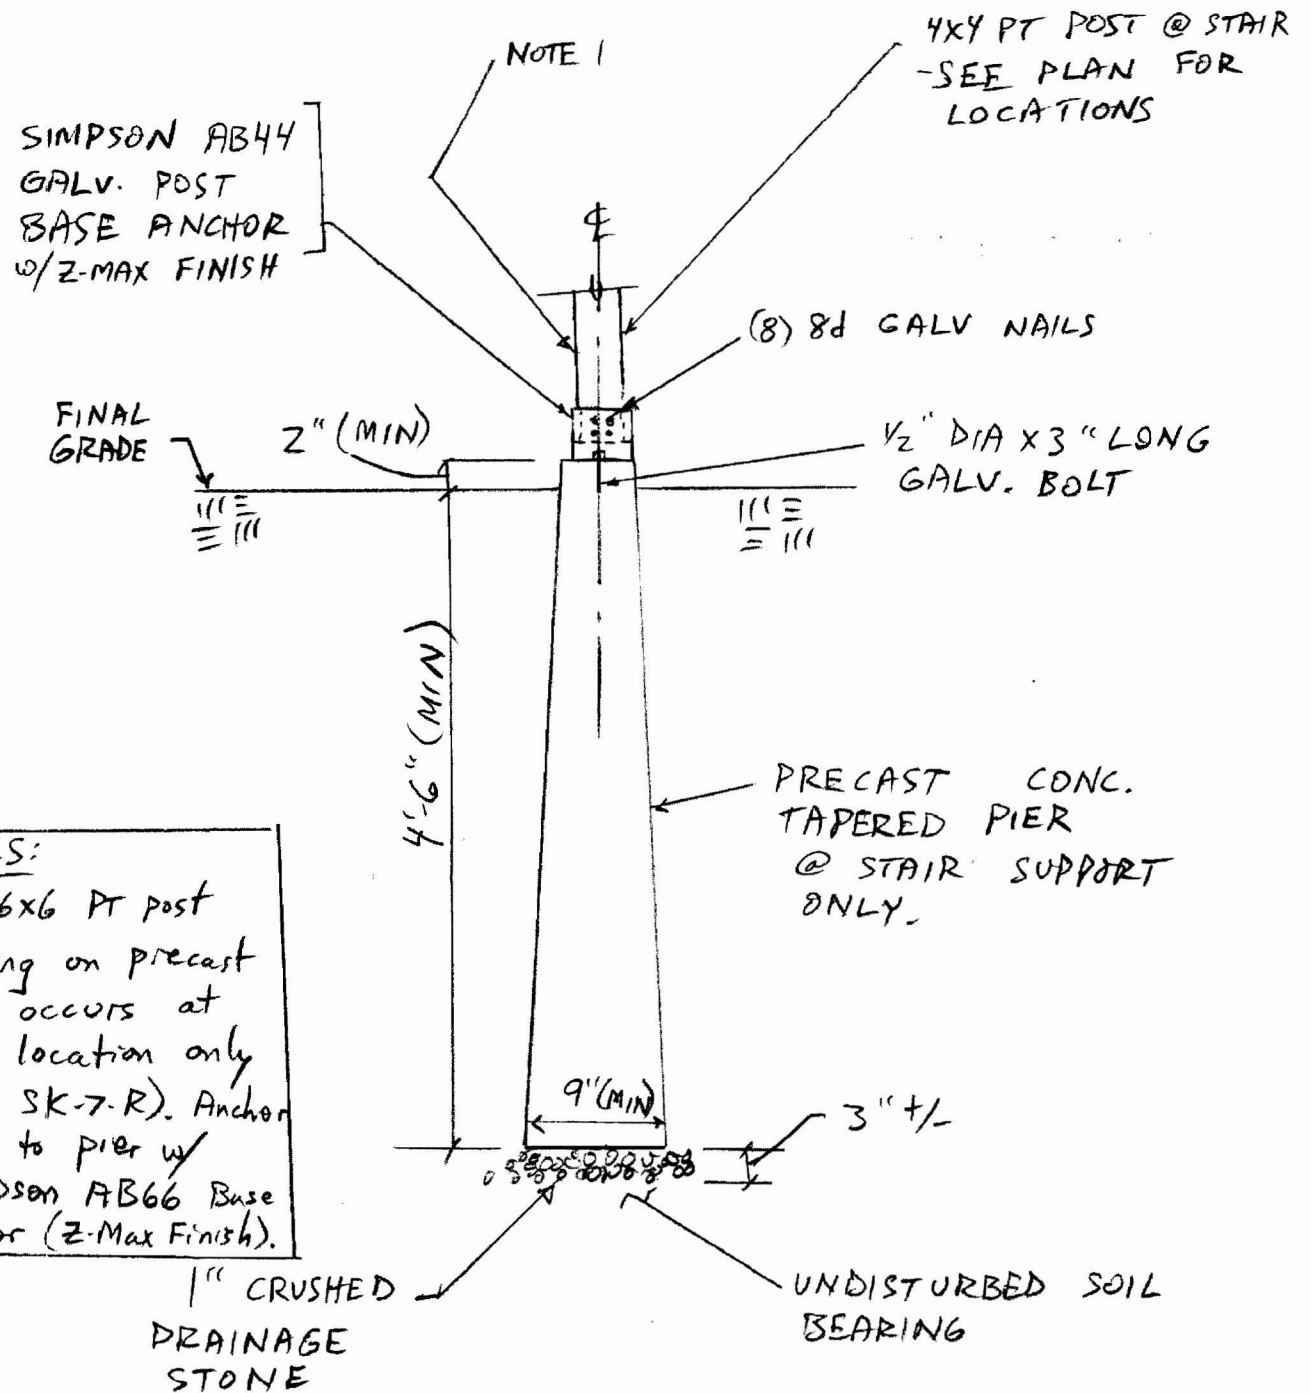 NOTE 1
4X4 PT POST @ STAIR
-SEE PLAN FOR
LOCATIONS
SIMPSON AB44
GALV. POST
BASE ANCHOR
W/Z-MAX FINISH
℄
(8) 8d GALV NAILS
FINAL
GRADE
2" (MIN)
1/2" DIA X 3" LONG
GALV. BOLT
4'-6" (MIN)
PRECAST CONC.
TAPERED PIER
@ STAIR SUPPORT
ONLY.
S:
6x6 PT post
ng on precast
occurs at
location only
SK-7-R). Anchor
to pier w/
pson AB66 Base
or (Z-Max Finish).
9"(MIN)
3" +/-
1" CRUSHED
DRAINAGE
STONE
UNDISTURBED SOIL
BEARING